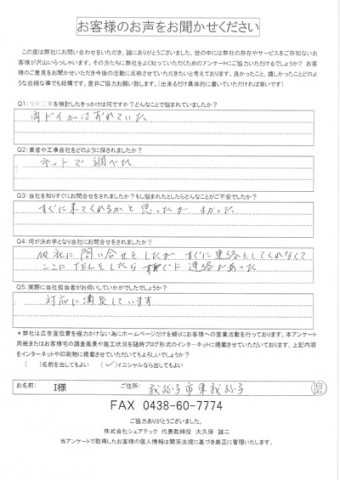 お客様のお声をお聞かせください
この度は弊社にお問い合わせをいただき、誠にありがとうございました。世の中には弊社の存在やサービスをご存知ないお
客様が沢山いらっしゃいます。その方たちに弊社をよく知っていただくためのアンケートにご協力いただけるでしょうか？ お客
様のご意見をお聞かせいただき今後の活動に反映させていただきたいと考えております。良かったこと、嬉しかったことどのよ
うな些細な事でも結構です。是非ご協力お願い致します。（出来るだけ具体的に書いていただければ幸いです）
Q1：を検討したきっかけは何ですか？どんなことで悩まれていましたか？
雨ドイがはずれていた
Q2：業者や工事会社をどのように探されましたか？
ネットで調べた
Q3：当社を知りすぐにお問合せをされましたか？もし悩まれたとしたらどんなことがご不安でしたか？
すぐに来てくれるかと思ったが よかった
Q4：何が決め手となり当社にお問合せをされましたか？
他社に問い合せをしたが すぐに連絡をしてくれなくて
ここにTELをしたら すぐに連絡があった
Q5：実際に当社担当者がお伺いしていかがでしたでしょうか？
対応に満足しています
＊弊社は広告宣伝費を極力かけない為にホームページだけを頼りにお客様への営業活動を行っております。本アンケート
用紙またはお客様宅の調査風景や施工状況を随時ブログ形式のインターネットに掲載させていただいております。上記内容
をインターネットや印刷物に掲載させていただいてもよろしいでしょうか？
（ ）名前を出してもよい （✓）イニシャルなら出してもよい
お名前： I様 ご住所： 我孫子市東我孫子
FAX 0438-60-7774
ご協力ありがとうございました。
株式会社シェアテック 代表取締役 大久保 誠二
当アンケートで取得したお客様の個人情報は関係法規に基づき厳正に管理いたします。